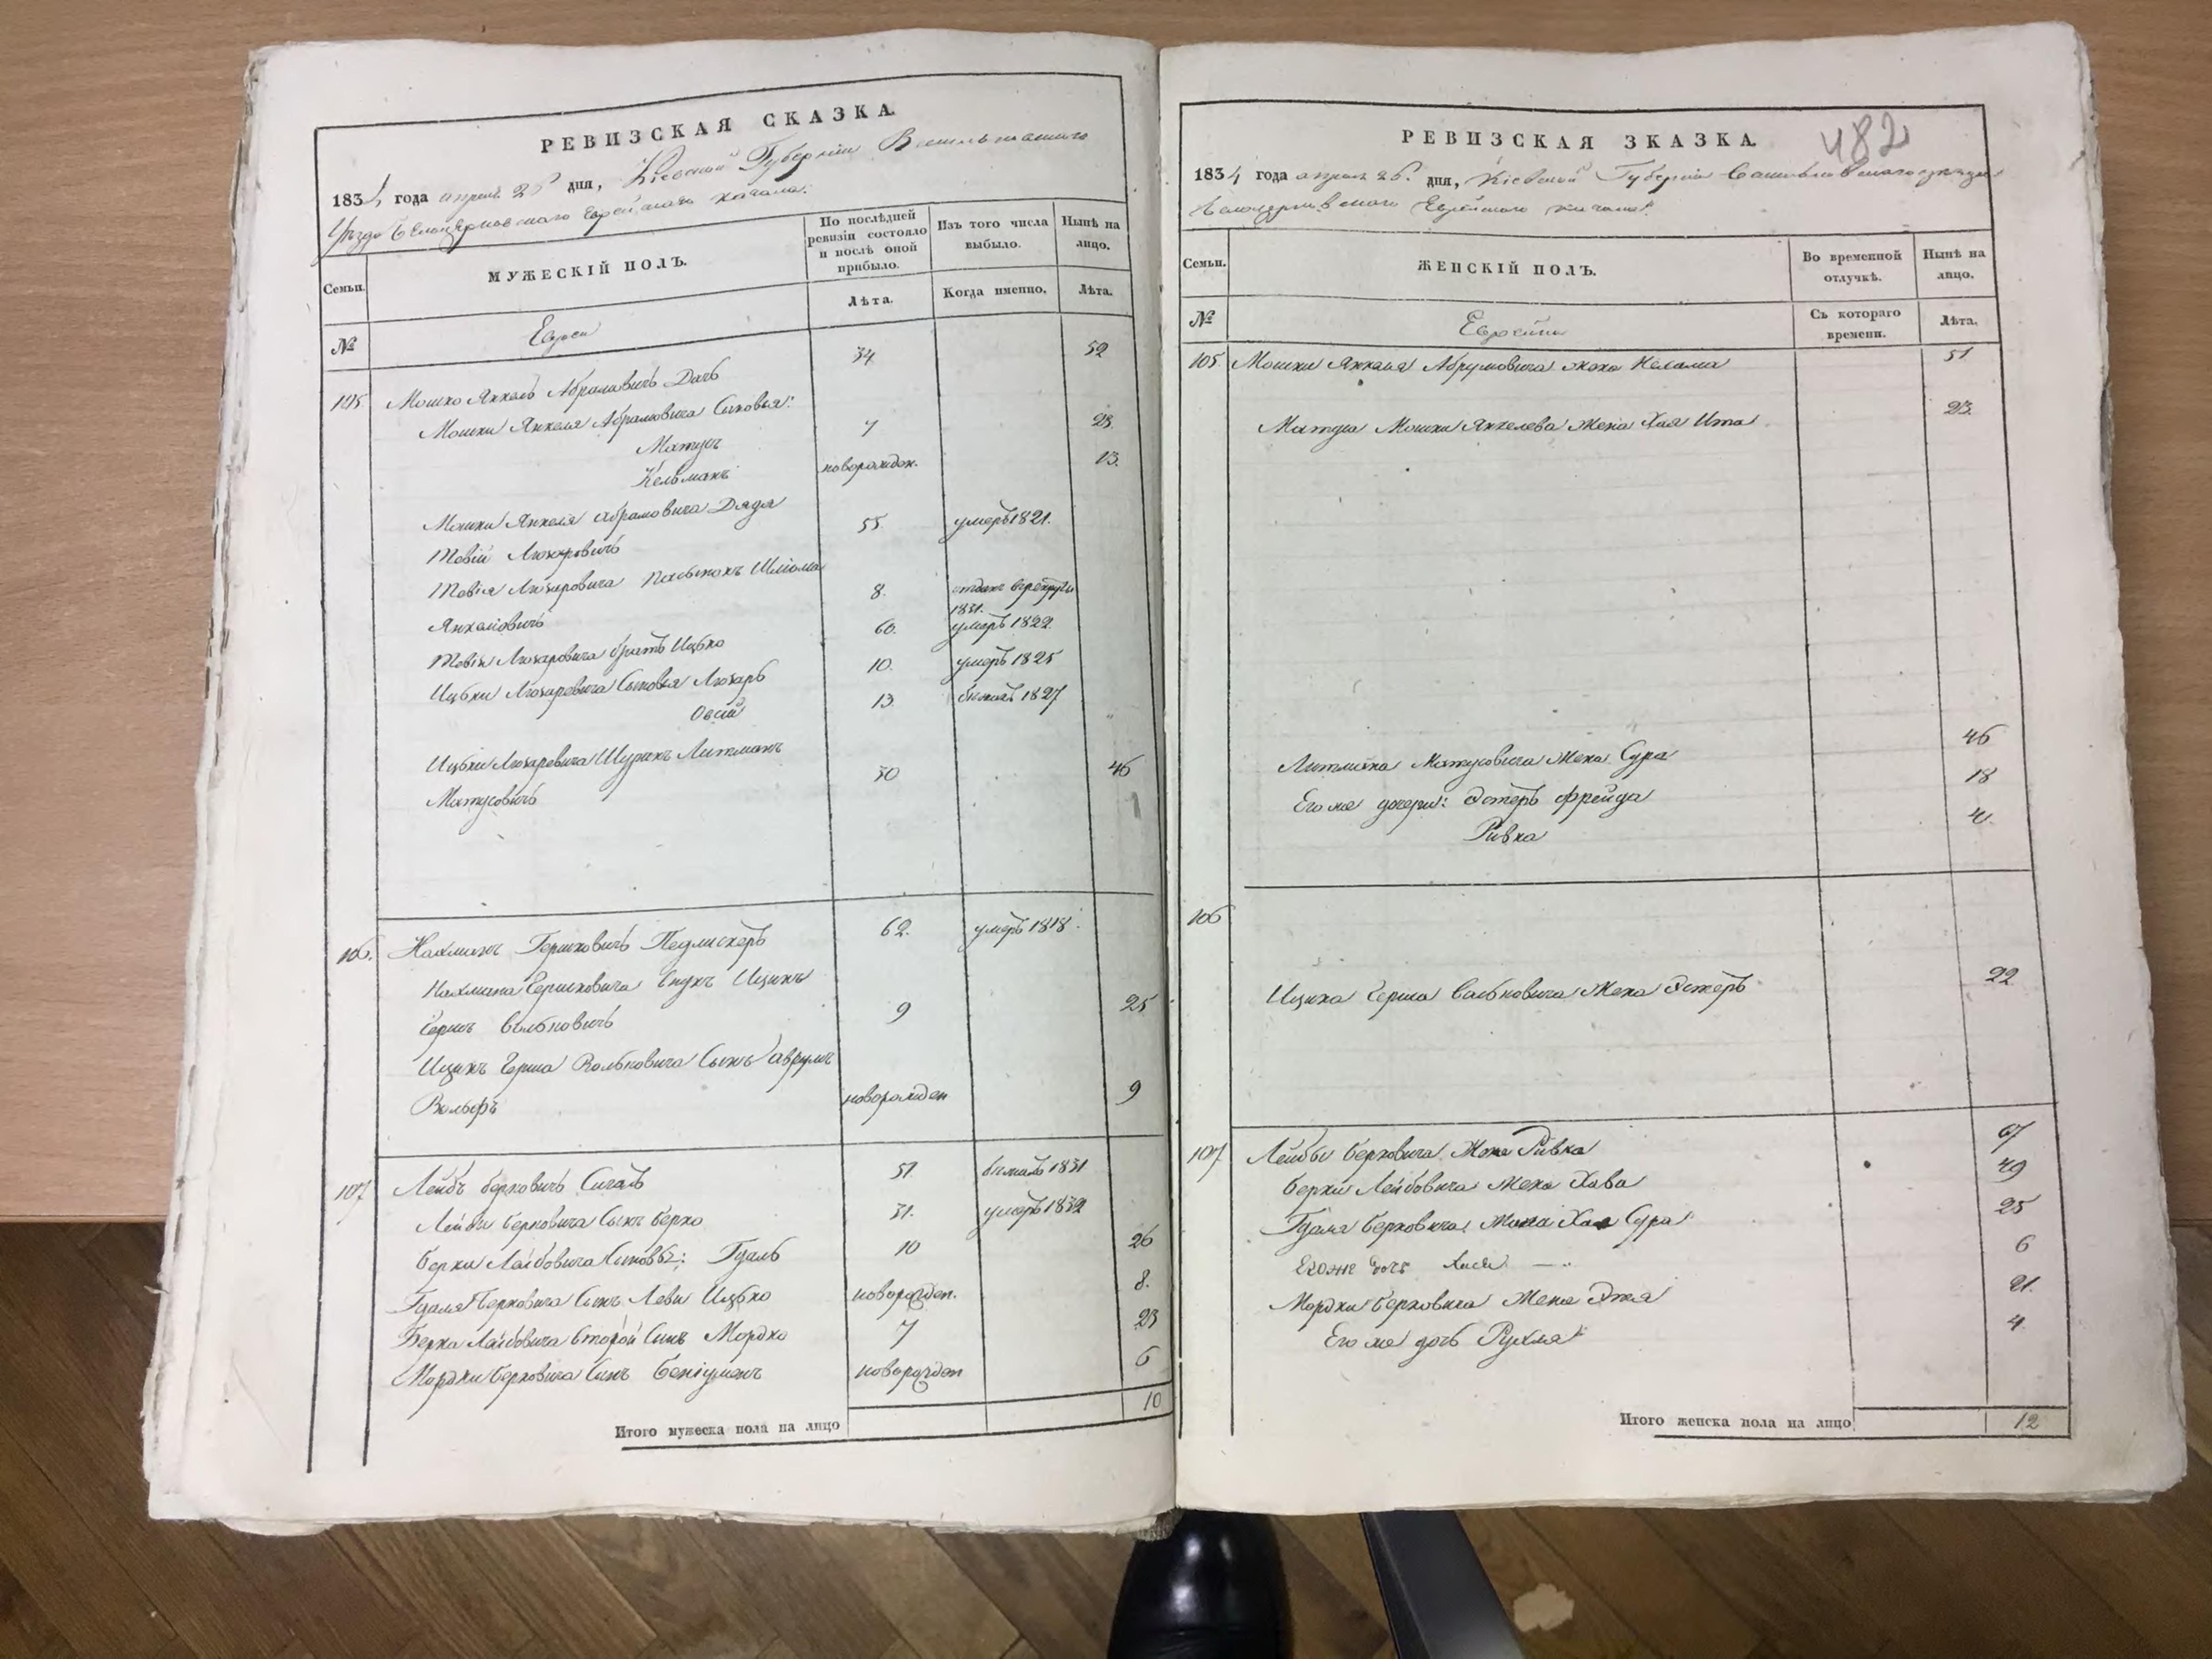 РЕВИЗСКАЯ СКАЗКА.
1834 года апреля 25 дня, Кіевской Губерніи Васильковскаго
Уезда Белоцерковского Еврейскаго кагала.
Семьи.
МУЖЕСКІЙ ПОЛЪ.
По послѣдней ревизіи состояло и послѣ оной прибыло.
Изъ того числа выбыло.
Нынѣ на лицо.
Лѣта.
Когда именно.
Лѣта.
№
Евреи
105 Мошко Янкель Абрамовичъ Дачъ 34 52
Мошки Янкеля Абрамовича Сыновья:
Матусъ 7 23
Кельманъ новорожден. 13.
Мошки Янкеля Абрамовича Дядя
Тевій Люзаровичъ 55 умеръ 1821.
Тевія Люзаровича Шліома
Янкеліовичъ 8. отданъ в рекруты 1831.
Тевія Люзаровича братъ Ицько 60. умеръ 1822.
Ицьки Люзаровича Сыновья Люзаръ 10. умеръ 1825
Овсій 13. бежалъ 1827
Ицьки Люзаровича Шуринъ Литманъ
Матусовичъ 30 46
106. Нахманъ Гершковичъ Педлискеръ 62. умеръ 1818.
Нахмана Гершковича внукъ Ицикъ
Гершъ Вольковичъ 9 25
Ицикъ Герша Вольковича Сынъ Аврумъ
Вольфъ новорожден 9
107 Лейбъ Берковичъ Сигалъ 51. бежалъ 1831
Лейбы Берковича Сынъ Берко 31. умеръ 1832
Берки Лейбовича Сыновья: Гдаль 10 26
Гдаля Берковича Сынъ Леви Ицько новорожден. 8.
Берка Лейбовича второй Сынъ Мордко 7 23
Мордки Берковича Сынъ Беніуменъ новорожден 6
Итого мужеска пола на лицо 10
РЕВИЗСКАЯ ЗКАЗКА.
482
1834 года апреля 25. дня, Кіевской Губерніи Васильковскаго уезда
Белоцерковского Еврейского кагала.
Семьи.
ЖЕНСКІЙ ПОЛЪ.
Во временной отлучкѣ.
Нынѣ на лицо.
№
Еврейки
Съ котораго времени.
Лѣта.
105 Мошки Янкеля Абрумовича жена Нехама 51
Матуса Мошки Янкелева жена Хая Ита 23.
Литмана Матусовича жена Сура 46
Его же дочери: Эстеръ Фрейда 18
Ривка
106
Ицика Герша Вольковича жена Эстеръ 22
107 Лейбы Берковича жена Ривка 67
Берки Лейбовича жена Хава 49
Гдаля Берковича жена Хая Сура 25
Его же дочь Хася 6
Мордки Берковича жена Эта 21.
Его же дочь Рухля 4
Итого женска пола на лицо 12